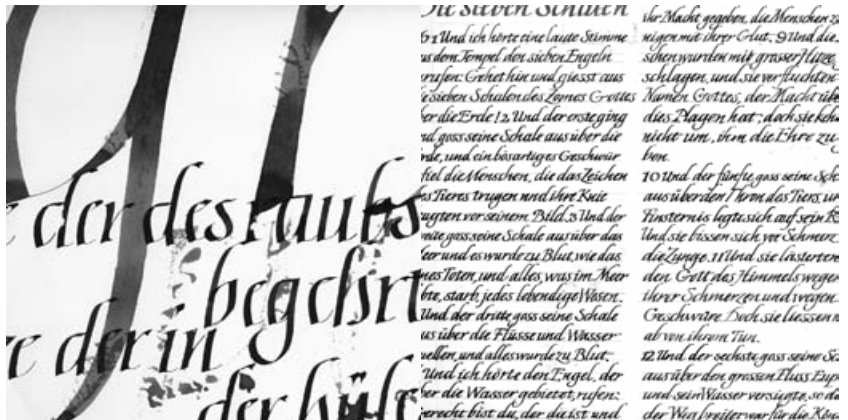 der des raubs
begehrt
e der in
der hüls
Die sieben Schalen
6 1 Und ich hörte eine laute Stimme
us dem Tempel den sieben Engeln
rufen: Gehet hin und giesst aus
e sieben Schalen des Zornes Gottes
ber die Erde! 2 Und der erste ging
nd goss seine Schale aus über die
rde, und ein bösartiges Geschwür
fiel die Menschen, die das Zeichen
es Tieres trugen und ihre Knie
ugten vor seinem Bild. 3 Und der
weite goss seine Schale aus über das
eer und es wurde zu Blut, wie das
nes Toten, und alles, was im Meer
bte, starb, jedes lebendige Wesen.
Und der dritte goss seine Schale
us über die Flüsse und Wasser-
uellen, und alles wurde zu Blut.
Und ich hörte den Engel, der
ber die Wasser gebietet, rufen:
erecht bist du, der du ist und
ihr Macht gegeben, die Menschen z
nigen mit ihrer Glut. 9 Und die
schen wurden mit grosser Hitze
schlagen, und sie verfluchten
Namen Gottes, der Macht übe
dies Plagen hat; doch sie keh
nicht um, ihm die Ehre zu g
ben.
10 Und der fünfte goss seine Sch
aus über den Thron des Tiers, un
Finsternis legte sich auf sein
Und sie bissen sich vor Schmerz
die Zunge. 11 Und sie lästerten
den Gott des Himmels wegen
ihrer Schmerzen und wegen
Geschwüre. Doch sie liessen n
ab von ihrem Tun.
12 Und der sechste goss seine Sc
aus über den grossen Fluss Eup
und sein Wasser versiegte, so da
der Weg breiter war für die Kön